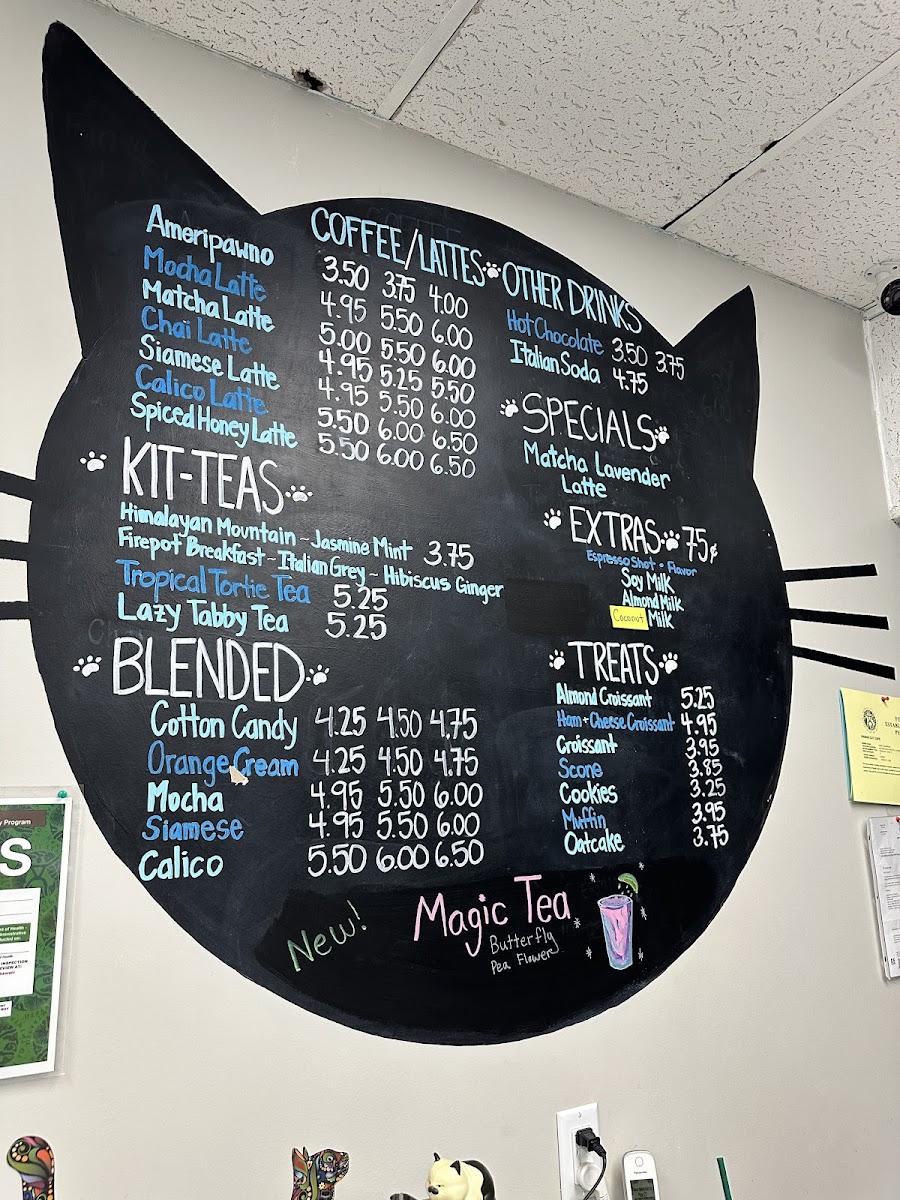 COFFEE/LATTES
Ameripawno 3.50 3.75 4.00
Mocha Latte 4.95 5.50 6.00
Matcha Latte 5.00 5.50 6.00
Chai Latte 4.95 5.25 5.50
Siamese Latte 4.95 5.50 6.00
Calico Latte 5.50 6.00 6.50
Spiced Honey Latte 5.50 6.00 6.50
KIT-TEAS
Himalayan Mountain ~ Jasmine Mint 3.75
Firepot Breakfast ~ Italian Grey ~ Hibiscus Ginger
Tropical Tortie Tea 5.25
Lazy Tabby Tea 5.25
BLENDED
Cotton Candy 4.25 4.50 4.75
Orange Cream 4.25 4.50 4.75
Mocha 4.95 5.50 6.00
Siamese 4.95 5.50 6.00
Calico 5.50 6.00 6.50
OTHER DRINKS
Hot Chocolate 3.50 3.75
Italian Soda 4.75
SPECIALS
Matcha Lavender
Latte
EXTRAS 75¢
Espresso Shot • Flavor
Soy Milk
Almond Milk
Coconut Milk
TREATS
Almond Croissant 5.25
Ham + Cheese Croissant 4.95
Croissant 3.95
Scone 3.85
Cookies 3.25
Muffin 3.95
Oatcake 3.75
New!
Magic Tea
Butterfly
Pea Flower